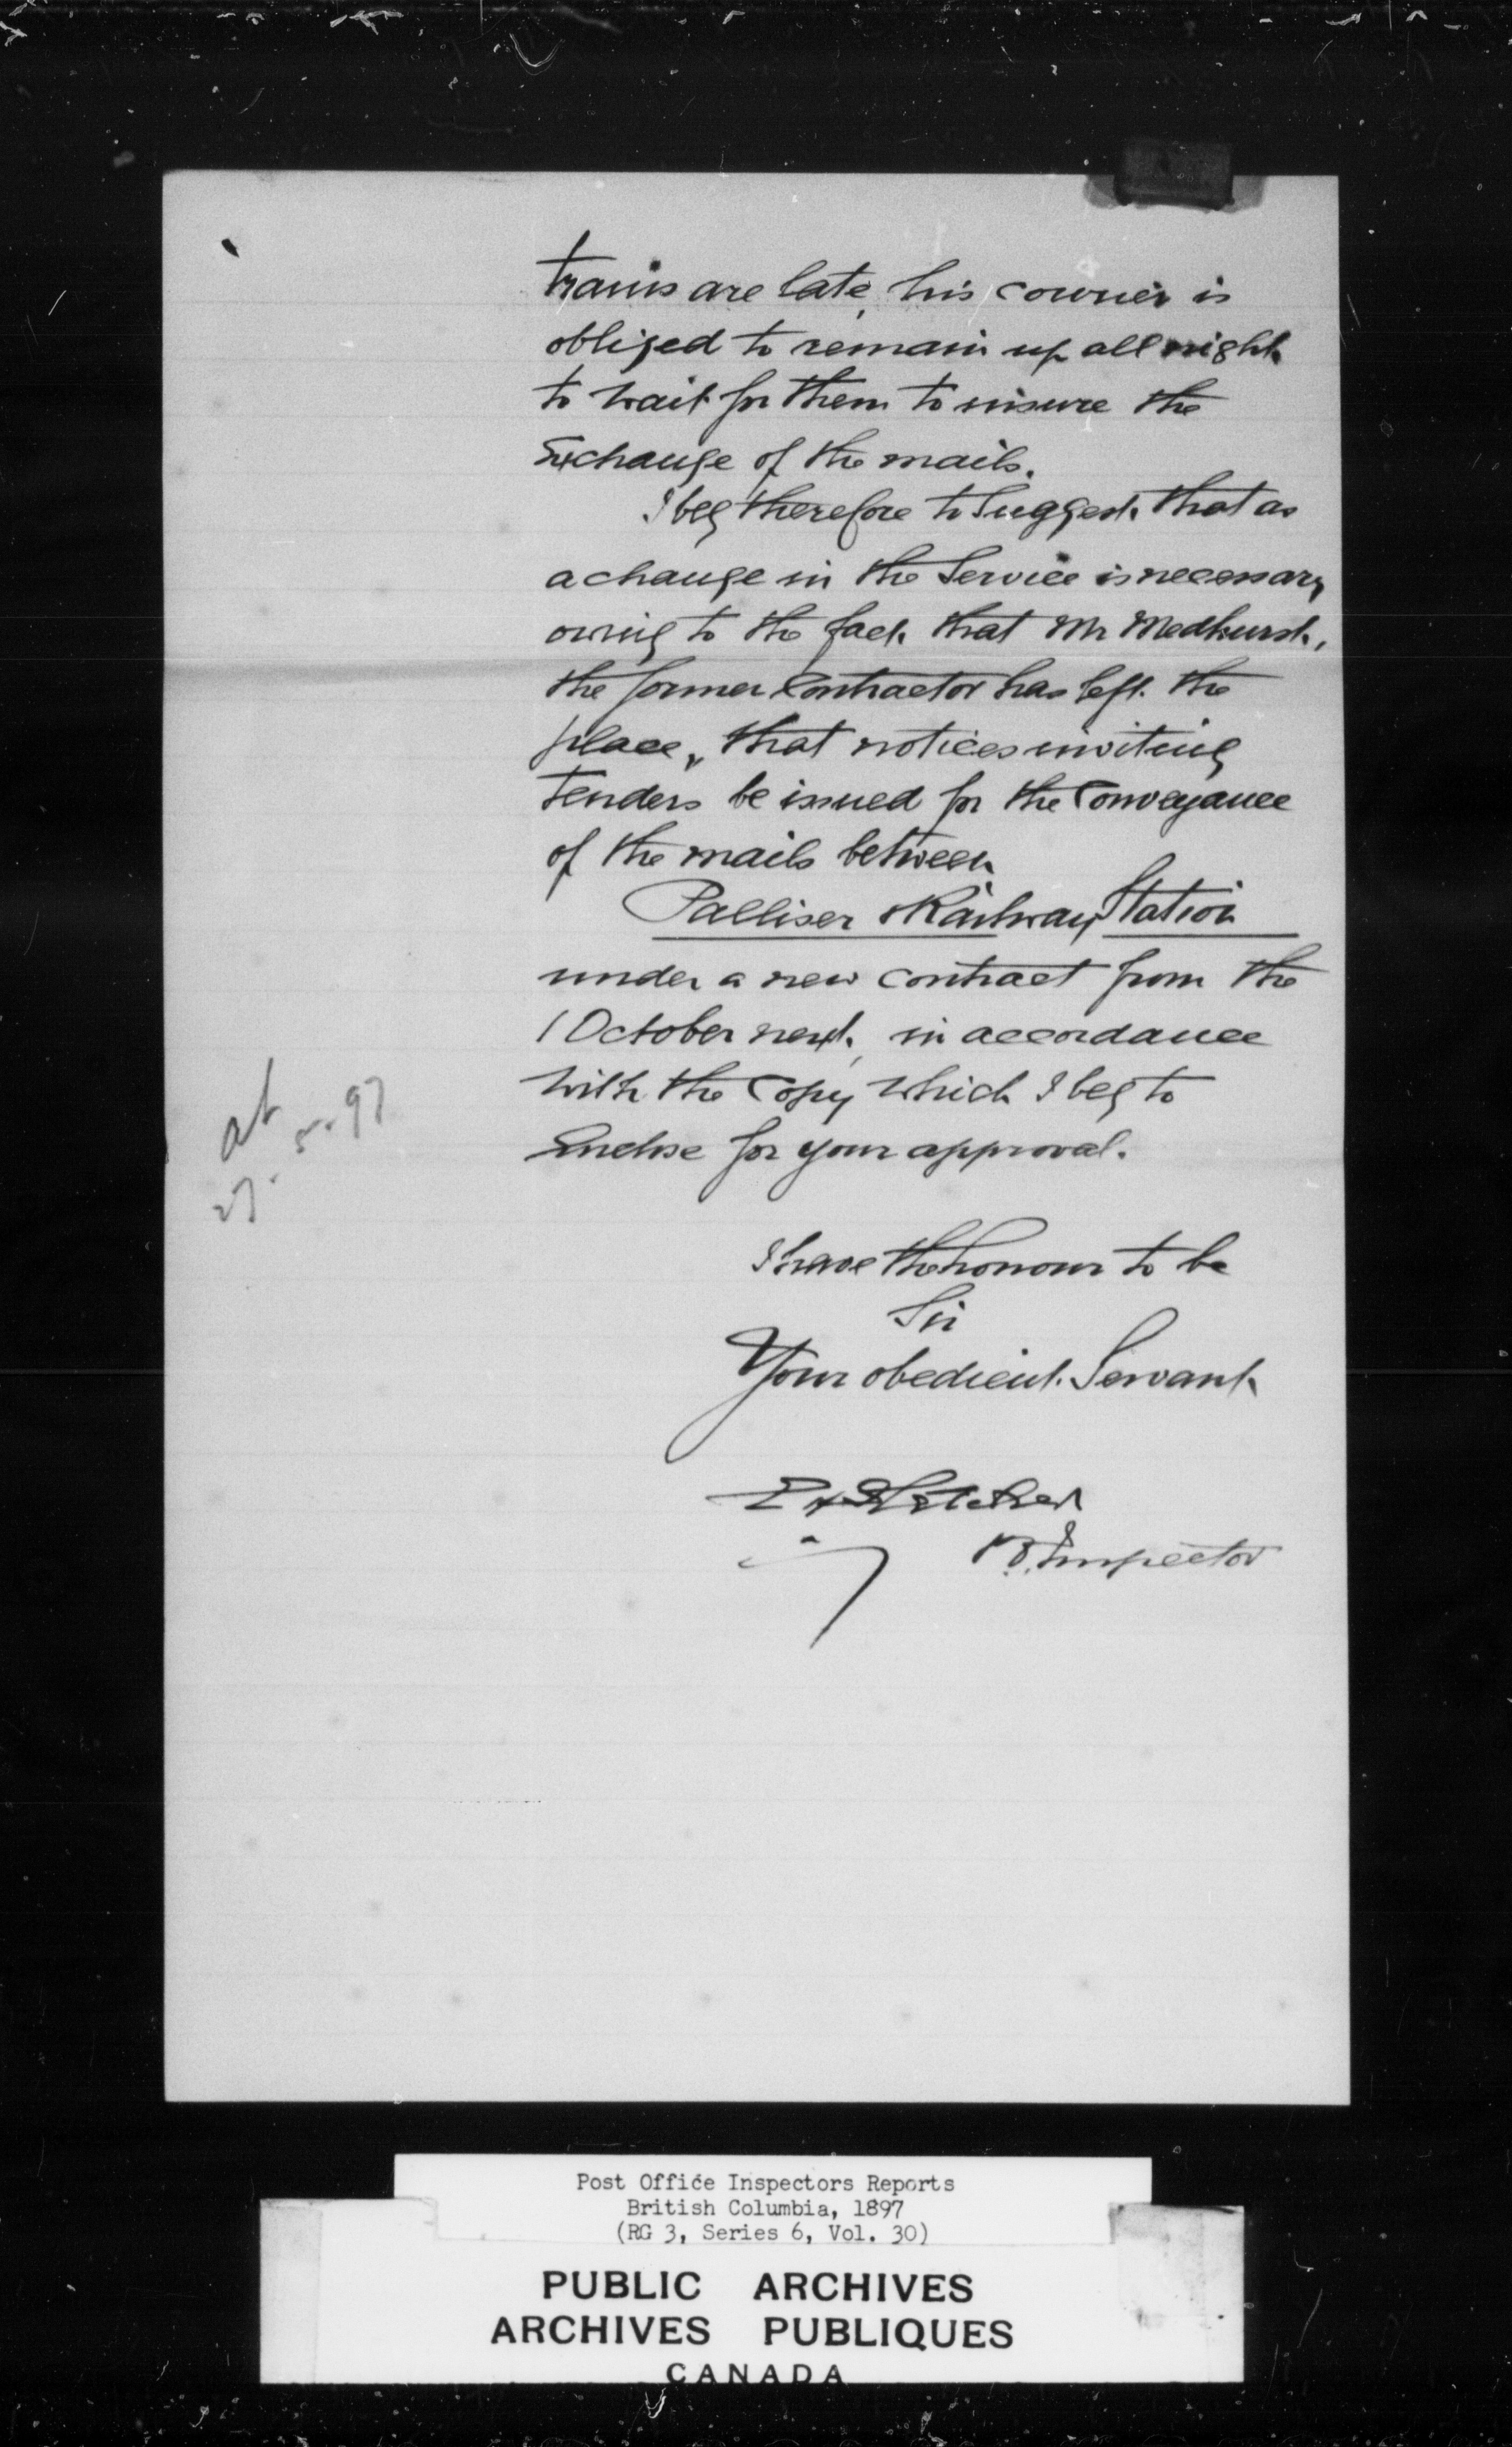 trains are late, his courier is
obliged to remain up all night
to wait for them to insure the
Exchange of the mails.
I beg therefore to suggest, that as
a change in the Service is necessary
owing to the fact that Mr Medhurst,
the former Contractor has left the
place, that notices inviting
tenders be issued for the Conveyance
of the mails between
Palliser & Railway Station
under a new contract from the
1 October next, in accordance
with the Copy which I beg to
Enclose for your approval.
at
27. 5. 97
I have the honour to be
Sir
Your obedient Servant
E H Fletcher
P.O. Inspector
Post Office Inspectors Reports
British Columbia, 1897
(RG 3, Series 6, Vol. 30)
PUBLIC ARCHIVES
ARCHIVES PUBLIQUES
CANADA